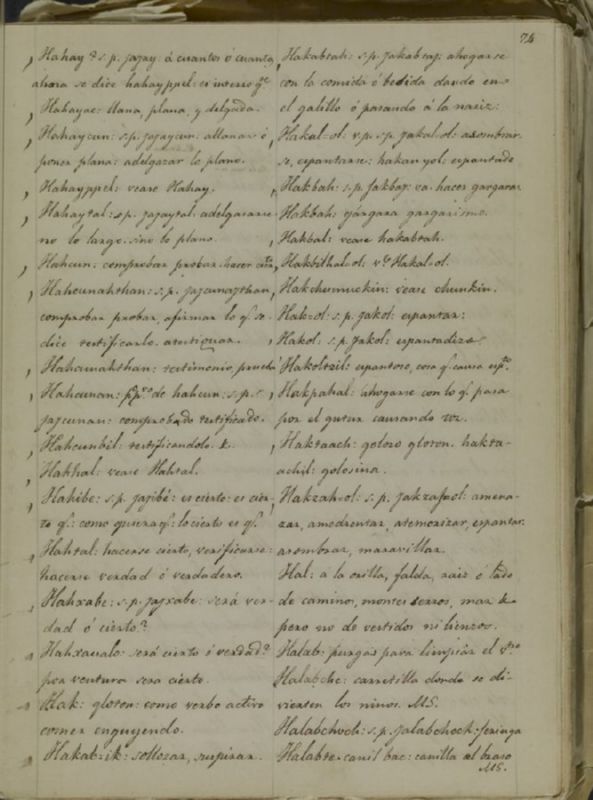 74
Hahay & s.p. jajay: á cuantos ó cuanta
ahora se dice hahayppel: es interro g.te
Hahayac: llana, plana, y delgada.
Hahaycun: s.p. jajaycun: allanar ó
poner plana: adelgazar lo plano.
Hahayppel: vease Hahay.
Hahaytal: s.p. jajaytal: adelgazarse
no lo largo sino lo plano.
Hahcun: comprobar probar hacer
Hahcunahthan: s.p. jajcunajthan,
comprobar probar, afirmar lo q. se
dice certificarlo. atestiguar.
Hahcunahthan: testimonio, prueba
Hahcunan: de hahcun: s.p.
jajcunan: comprobado certificado.
Hahcunbil: certificandolo &.
Hahhal: vease Hahtal.
Hahibe: s.p. jajibé: es cierto: es cier-
to q.: como quiera q.: lo cierto es q.
Hahtal: hacerse cierto, verificarse:
hacerse verdad ó verdadero.
Hahxabe: s.p. jajxabe: será ver-
dad ó cierto?
Hahxaualo: será cierto ó verdad?
por ventura sera cierto.
Hak: gloton: como verbo activo
comer enguyendo.
Hakabzik: sollozar, suspirar.
Hakabtah: s.p. jakabtaj: ahogarse
con la comida ó bebida dando en
el galillo ó pasando á la nariz:
Hakal-ol: v.p. s.p. jakal-ol: asombrar
se, espantarse: hakanyol: espantado
Hakbah: s.p. jakbaj: va. hacer gargaras
Hakbah: gárgara gargarismo.
Hakbal: vease hakabtah.
Hakbithal-ol: v.e Hakal-ol.
Hakchumuckin: vease chunkin.
Hak-ol: s.p. jakol: espantar:
Hakol: s.p. jakol: espantadizo
Hakoltzil: espantoso, cosa q. causa
Hakpahal: ahogarse con lo q. pasa
por el gutur causando toz.
Haktaach: golozo gloton. hakta-
achil: golosina.
Hakzah-ol: s.p. jakzaj-ol: amena-
zar, amedrentar, atemorizar, espantar
asombrar, maravillar.
Hal: a la orilla, falda, raiz ó lado
de camino, montes serros, mar &
pero no de vestidos ni lienzos.
Halab: purgas para limpiar el v.tre
Halabche: carretilla donde se di-
vierten los ninos. MS.
Halabchoch: s.p. jalabchoch: jeringa
Halabte: canil bac: canilla del brazo
MS.